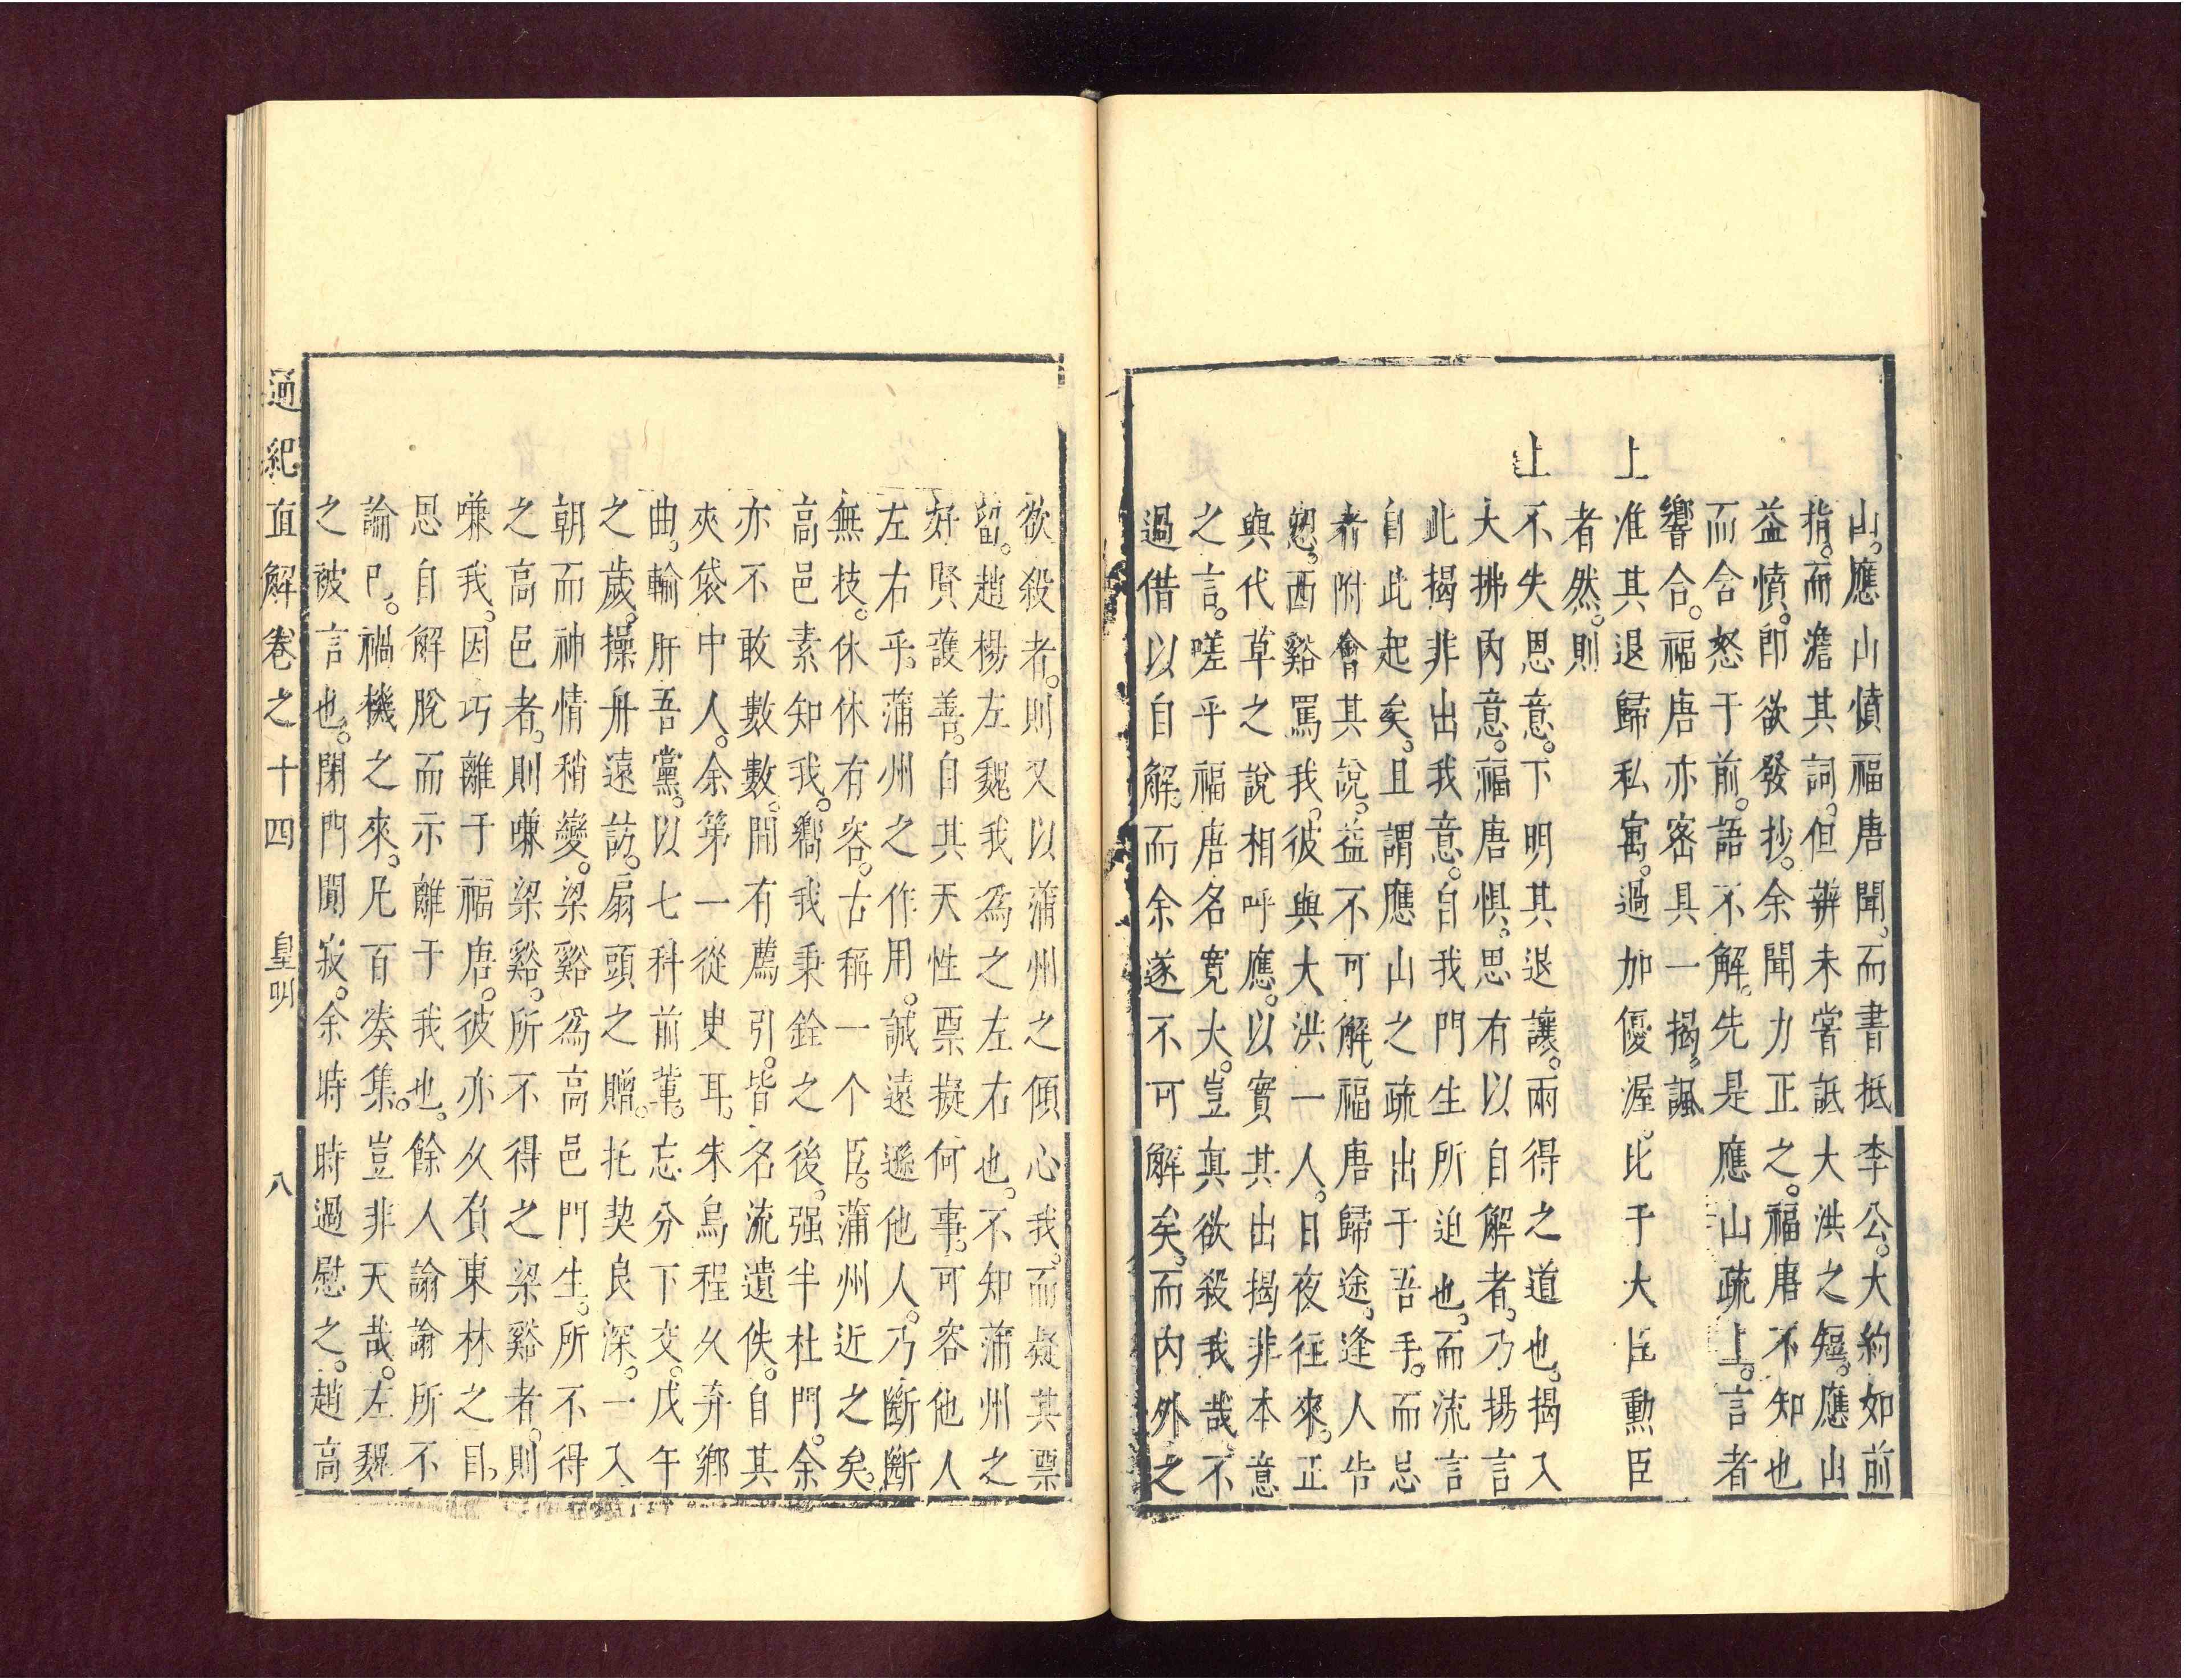 山。應山憤福唐聞。而書抵李公。大約如前
指。而澹其詞。但辨未嘗詆大洪之短。應山
益憤。卽欲發抄。余聞力正之。福唐不知也
而含怒于前。語不解。先是應山疏上。言者
響合。福唐亦密具一揭。諷
上准其退歸私寓。過加優渥。比于大臣勳臣
者然。則
上不失恩意。下明其退讓。兩得之道也。揭入
大拂內意。福唐懼。思有以自解者。乃揚言
此揭非出我意。自我門生所迫也。而流言
自此起矣。且謂應山之疏出于吾手。而忌
者附會其說。益不可解。福唐歸途。逢人告
愬。西谿罵我。彼與大洪一人。日夜往來。正
與代草之說相呼應。以實其出揭非本意
之言。嗟乎福唐名寬大。豈真欲殺我哉。不
過借以自解。而余遂不可解矣。而內外之
欲殺者。則又以蒲州之傾心我。而疑其票
留。趙楊左魏我為之左右也。不知蒲州之
好賢護善。自其天性票擬何事。可容他人
左右乎。蒲州之作用。誠遠遜他人。乃斷斷
無技。休休有容。古稱一个臣。蒲州近之矣。
高邑素知我。嚮我秉銓之後。强半杜門。余
亦不敢數數。間有薦引。皆名流遺佚。自其
夾袋中人。余第一從史耳。朱烏程久弃鄉
曲。輸肝吾黨。以七科前輩。忘分下交。戊午
之歲。操舟遠訪。扇頭之贈。托契良深。一入
朝而神情稍變。梁谿為高邑門生。所不得
之高邑者。則嗛梁谿。所不得之梁谿者。則
嗛我。因巧離于福唐。彼亦久負東林之目。
思自解脫而示離于我也。餘人諭諭所不
論已。禍機之來。凡百湊集。豈非天哉。左魏
之被言也。閉門闃寂。余時時過慰之。趙高
通紀直解卷之十四　皇明　八